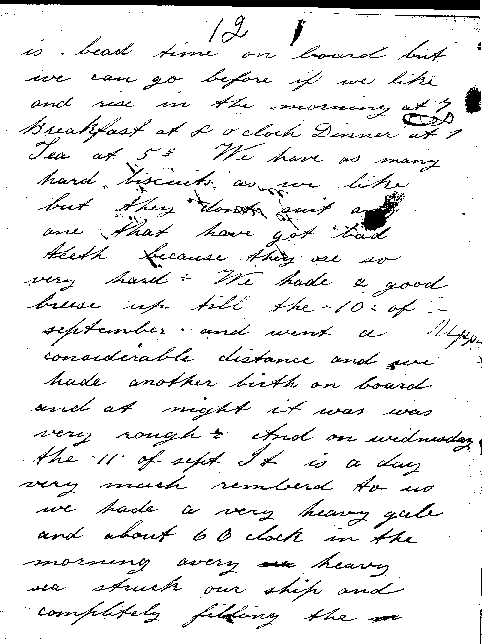 12
is bead time on board but
we can go before if we like
and rise in the morning at 7
Breakfast at 8 o'clock Dinner at 1
Tea at 5
We have as many
hard biscuits as we like
but they dont suit any
one that have got bad
teeth because they are so
very hard We hade a good
breese up till the 10 of
september and went a
considerable distance and we
hade another birth on board
and at night it was was
very rough And on wednesday
the 11 of sept It is a day
very much remberd to us
we hade a very heavy gale
and about 6 O clock in the
morning avery heavy
sea struck our ship and
completely filling the